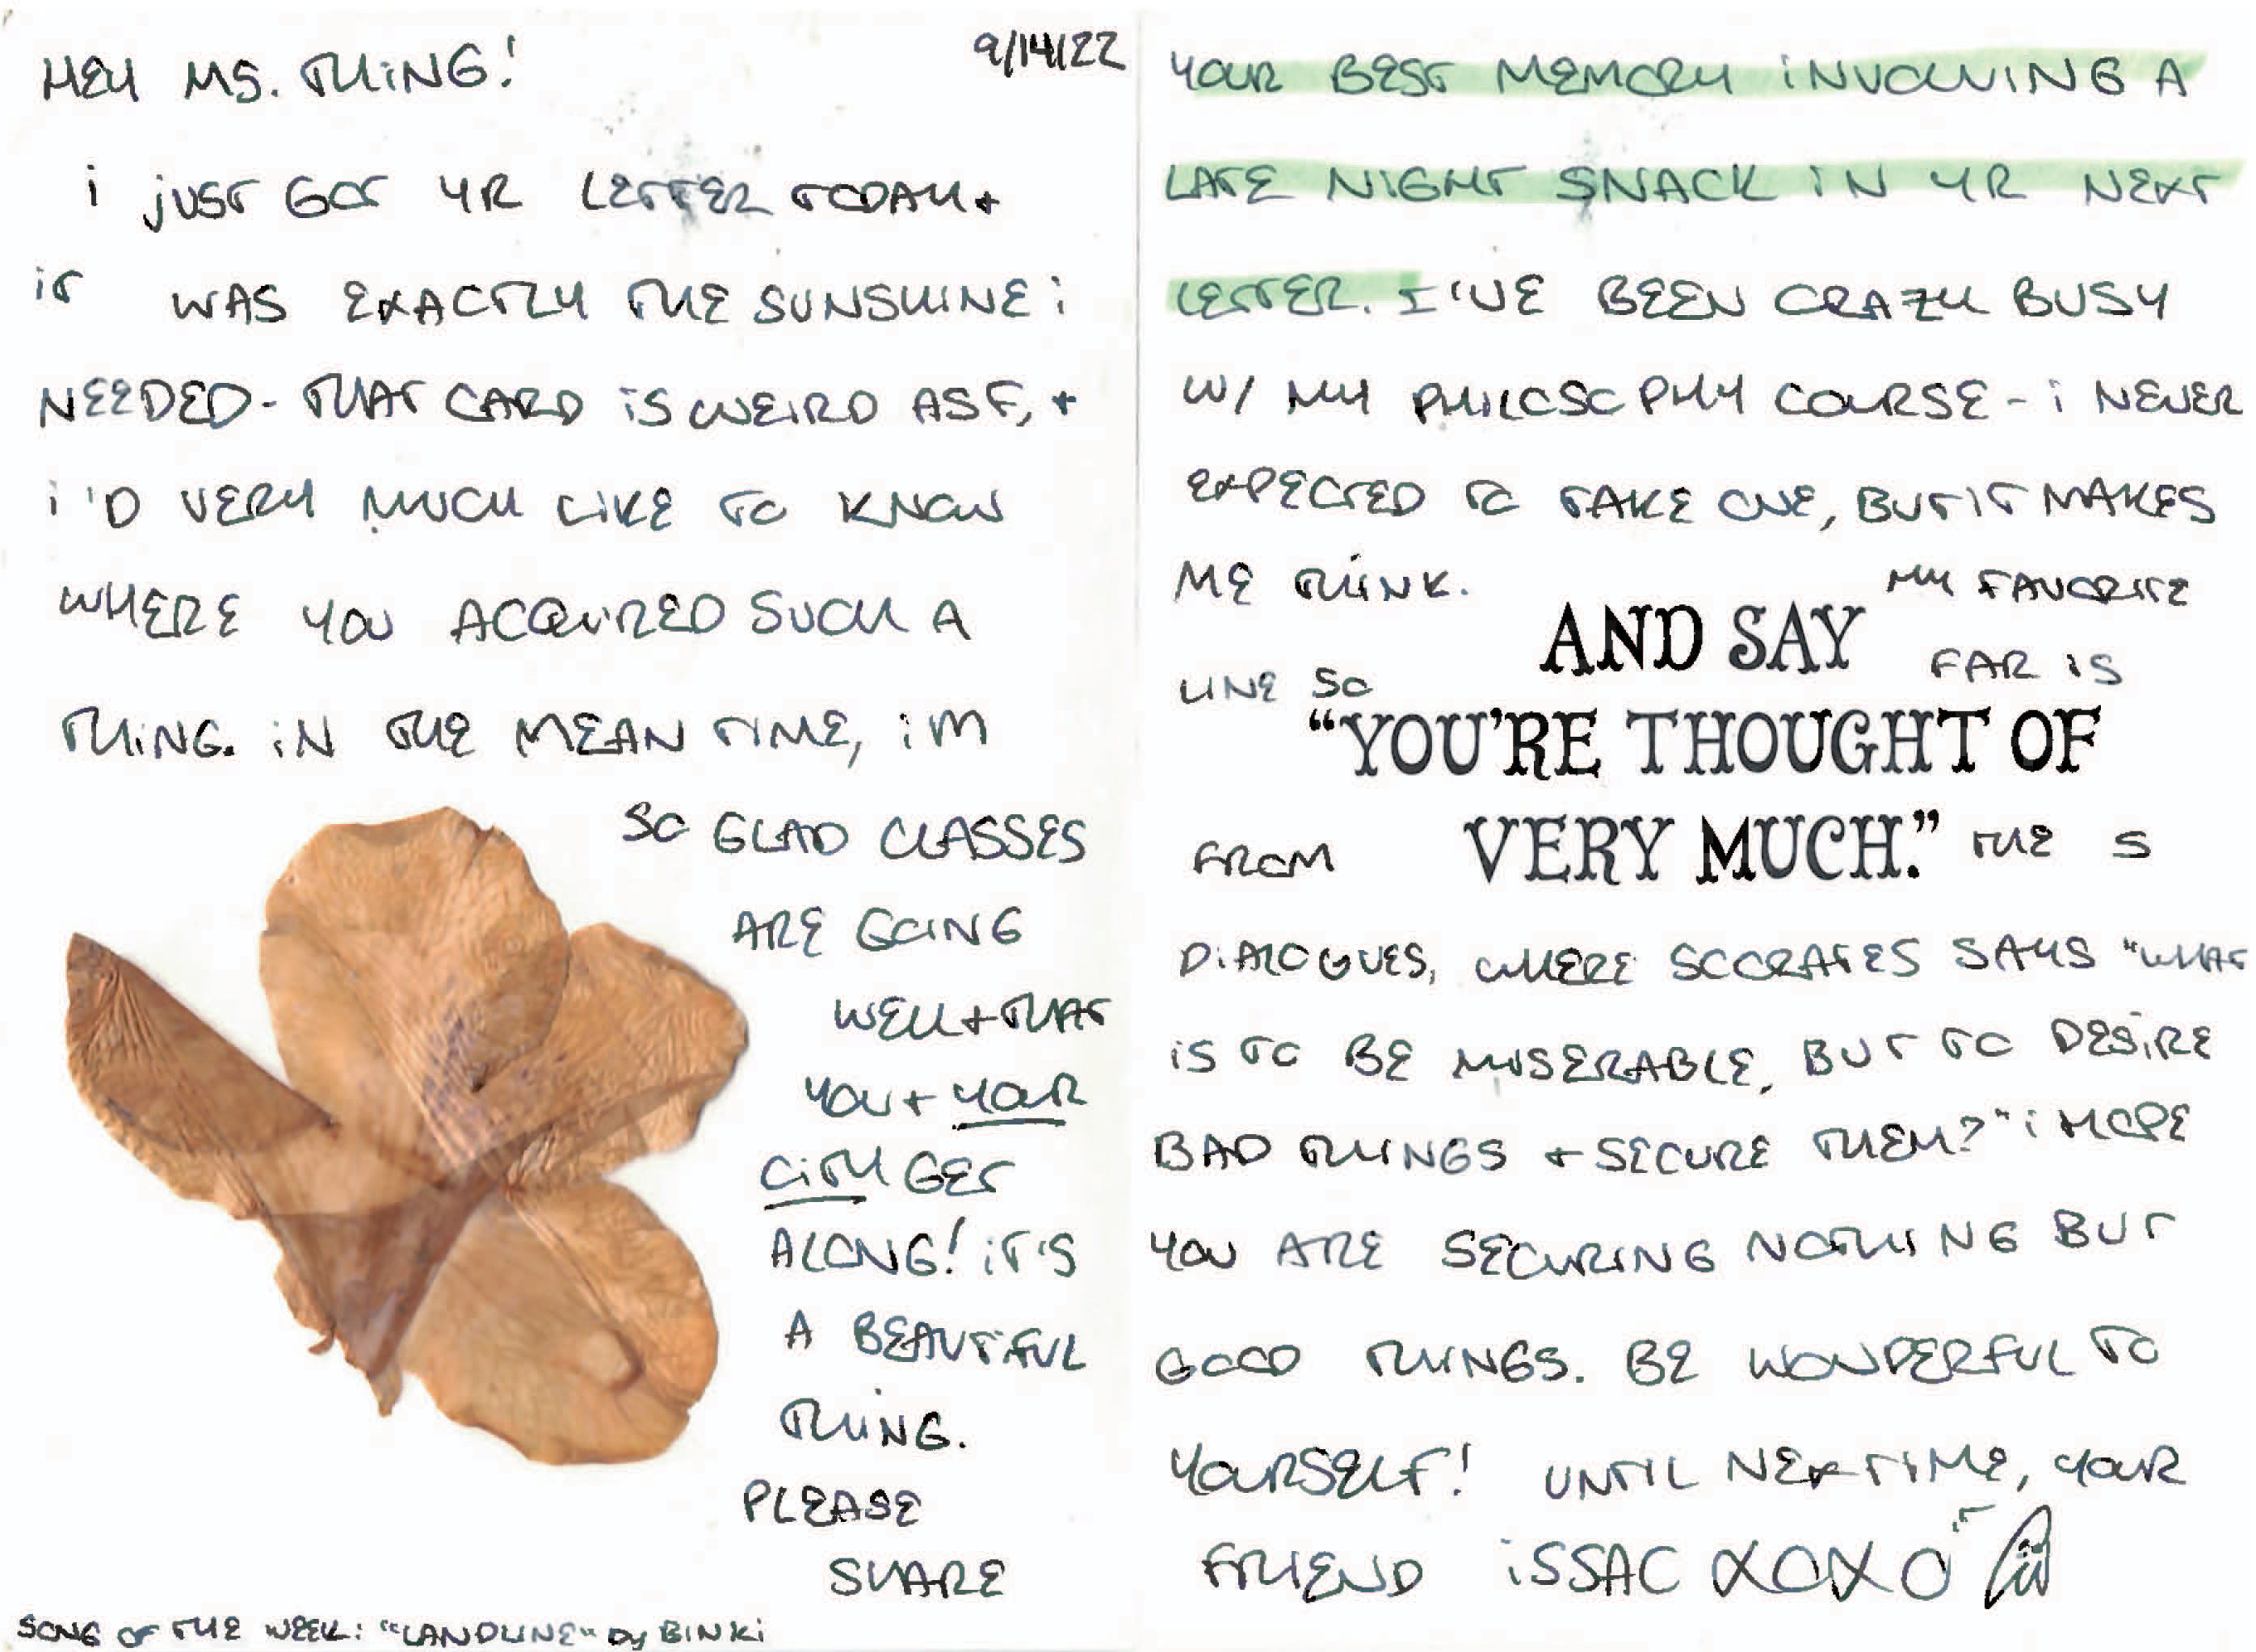 9/14/22
HEY MS. THING!
i jUST GOT YR LETTER TODAY +
iT WAS EXACTLY THE SUNSHINE i
NEEDED - THAT CARD iS WEIRD ASF, +
i'D VERY MUCH LiKE TO KNOW
WHERE YOU ACQUIRED SUCH A
THiNG. iN THE MEAN TIME, iM
SO GLAD CLASSES
ARE GOING
WELL + THAT
YOU + YOUR
CiTY GET
ALONG! iT'S
A BEAUTIFUL
THiNG.
PLEASE
SHARE
SONG OF THE WEEK: "LANDLINE" by BINKi
YOUR BEST MEMORY iNVOLVING A
LATE NIGHT SNACK iN YR NEXT
LETTER. I'VE BEEN CRAZY BUSY
W/ MY PHILOSOPHY COURSE - i NEVER
EXPECTED TO TAKE ONE, BUT IT MAKES
ME THiNK. MY FAVORITE
AND SAY
LINE SO FAR iS
“YOU'RE THOUGHT OF
FROM VERY MUCH.” THE S
DiALOGUES, WHERE SOCRATES SAYS "WHAT
iS TO BE MISERABLE, BUT TO DESiRE
BAD THINGS + SECURE THEM?" i HOPE
YOU ARE SECURING NOTHING BUT
GOOD THINGS. BE WONDERFUL TO
YOURSELF! UNTIL NEXT TIME, YOUR
FRIEND iSSAC XOXO